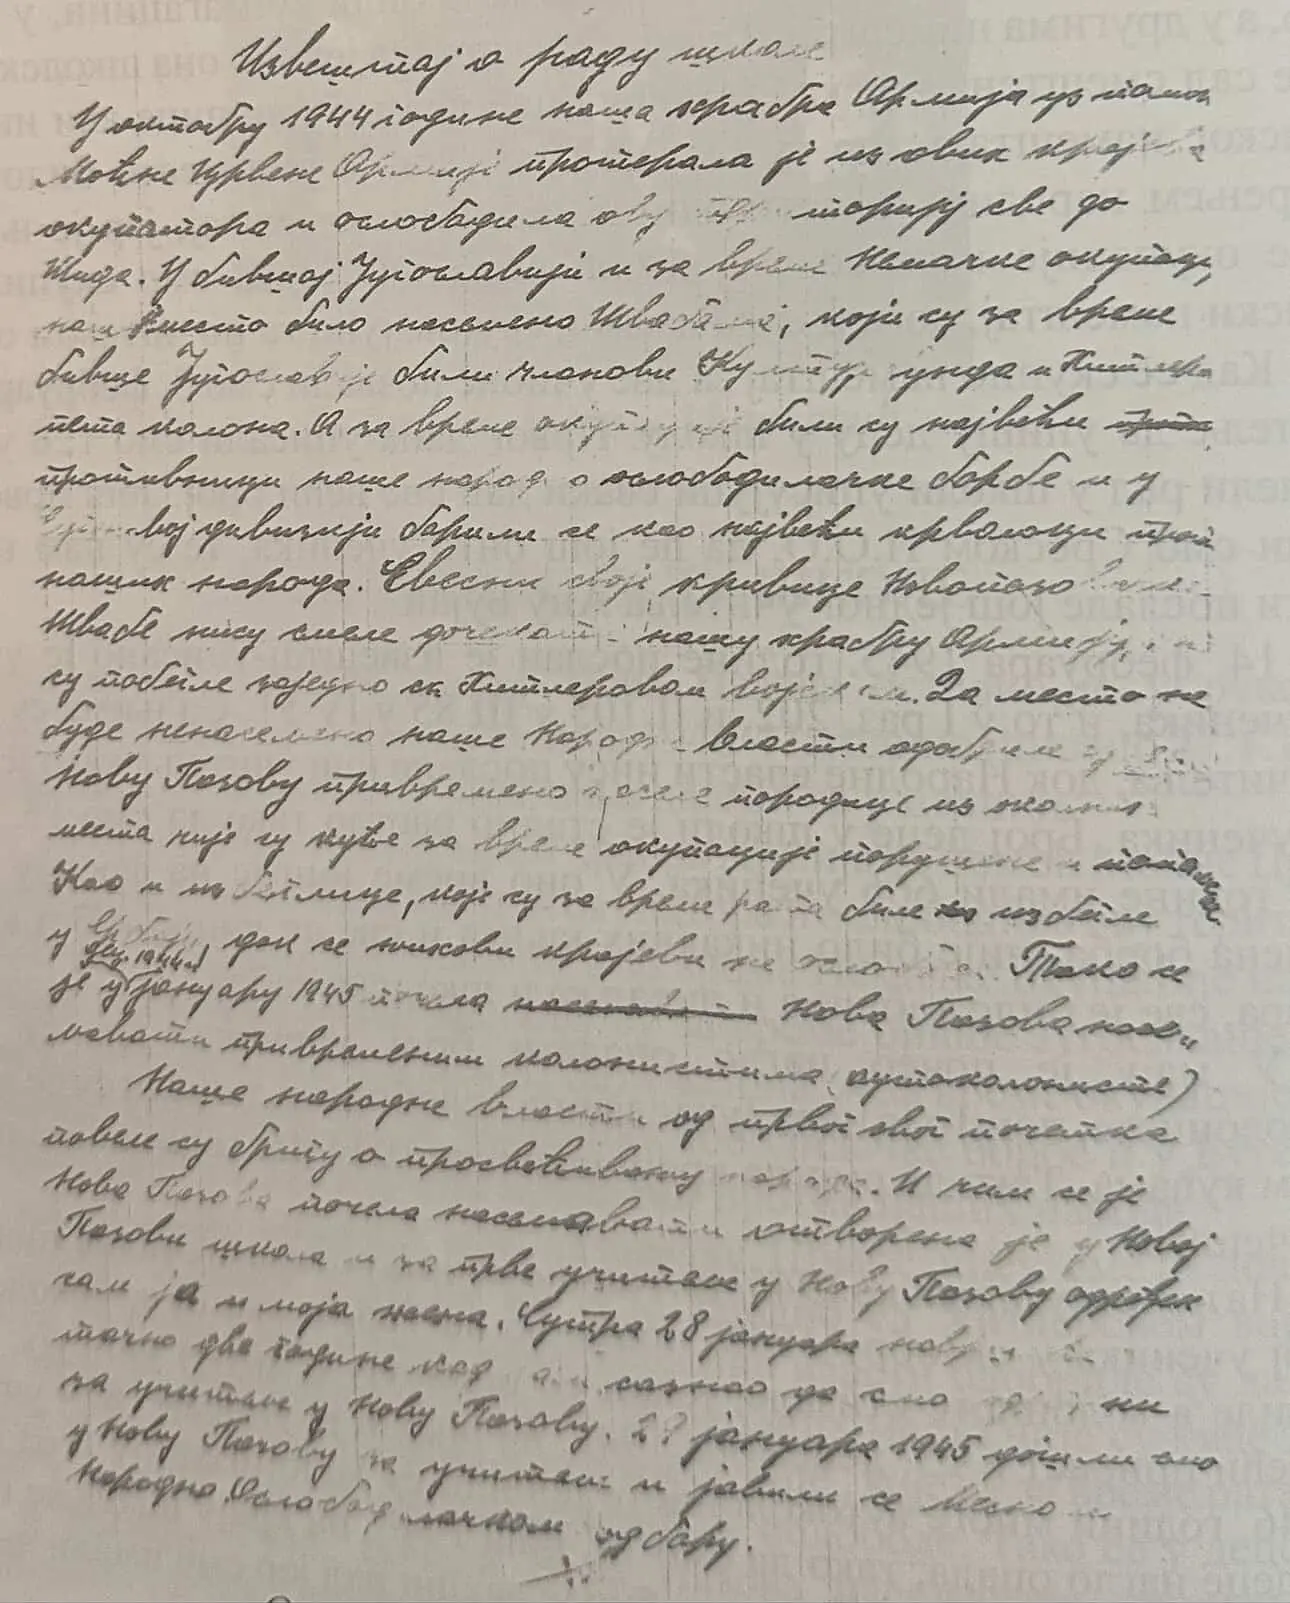 Извештај о раду школе
У октобру 1944 године наша храбра Армија уз помоћ
Моћне Црвене Армије протерала је из ових крајева
окупатора и ослободила ову територију све до
Шида. У бившој Југославији и за време Немачке окупације,
наше место било насељено Швабама, који су за време
бивше Југославије били чланови Културбунда и Хитлерова
пета колона. А за време окупације били су највећи
противници наше народно ослободилачке борбе и у
дивизији борили се као највећи крволоци против
наших народа. Свесни своје кривице Новопазовачке
Швабе нису смеле дочекати нашу храбру Армију,
су побегле заједно са Хитлеровом војском. Да место не
буде ненасељено наше Народне власти одобриле су
Нову Пазову привремено породице из околних
места чије су куће за време окупације порушене и попаљене
Као и избеглице, које су за време рата биле избегле
у Србију, док се њихови крајеви не ослободе. Тако се
дец. 1944 и
је у јануару 1945 почела Нова Пазова насе„
љавати привременим колонистима (аутоколонисте)
Наше народне власти од првог свог почетка
повеле су бригу о просвећивању народа. И чим се је
Нова Пазова почела насељавати отворена је у Новој
Пазови школа и за прве учитеље у Нову Пазову одређен
сам ја и моја жена. Сутра 28 јануара
тачно две године кад сам сазнао да смо
за учитеље у Нову Пазову. јануара 1945 дошли смо
у Нову Пазову за учитеље и јавили се Месном
Народно Ослободилачком одбору.